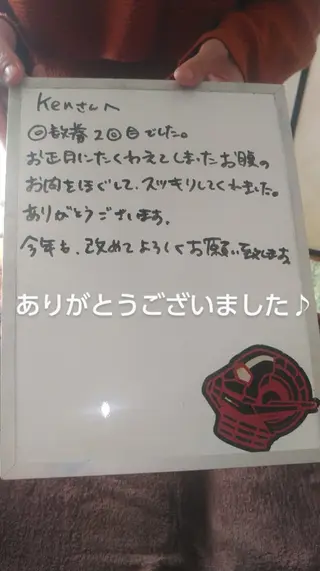 Kenさんへ
回数券2回目でした。
お正月にたくわえてしまったお腹の
お肉をほぐして、スッキリしてくれました。
ありがとうございます。
今年も、改めてよろしくお願い致します
ありがとうございました♪